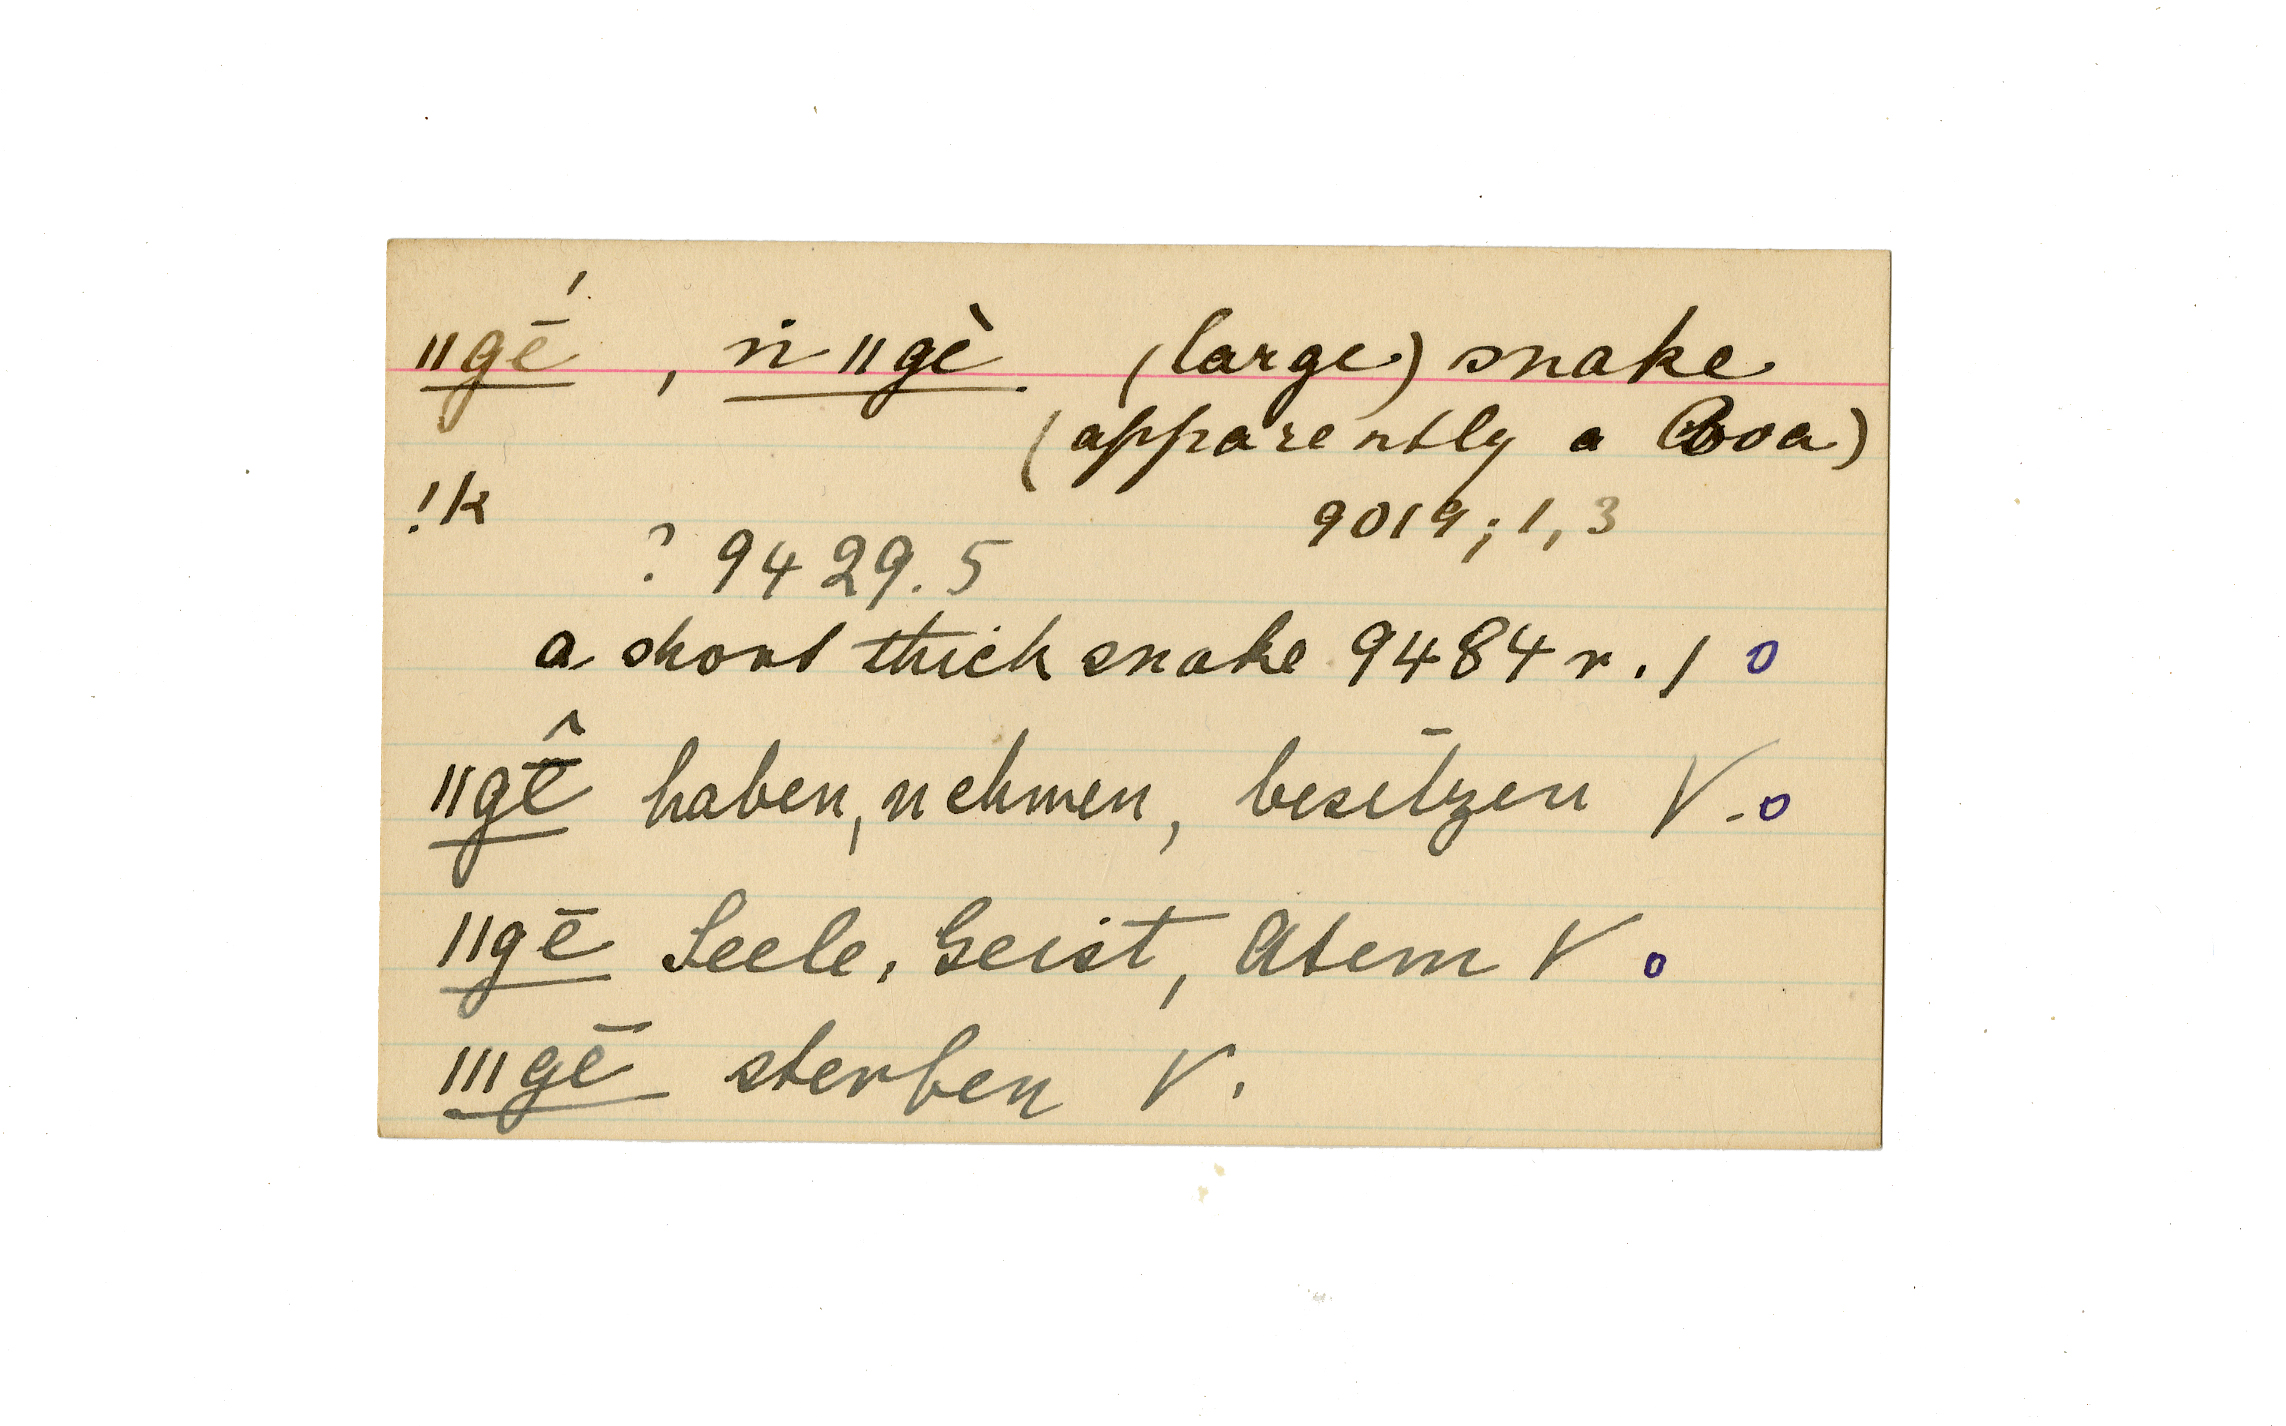 ǁgḗ, ṅ ǁgè (large) snake
(apparently a Boa)
!k 9019; 1, 3
? 9429.5
a short thick snake 9484 r. / o
ǁgē̂ haben, nehmen, besitzen V. o
ǁgē Seele, Geist, Atem V o
ǀǁgē sterben V.